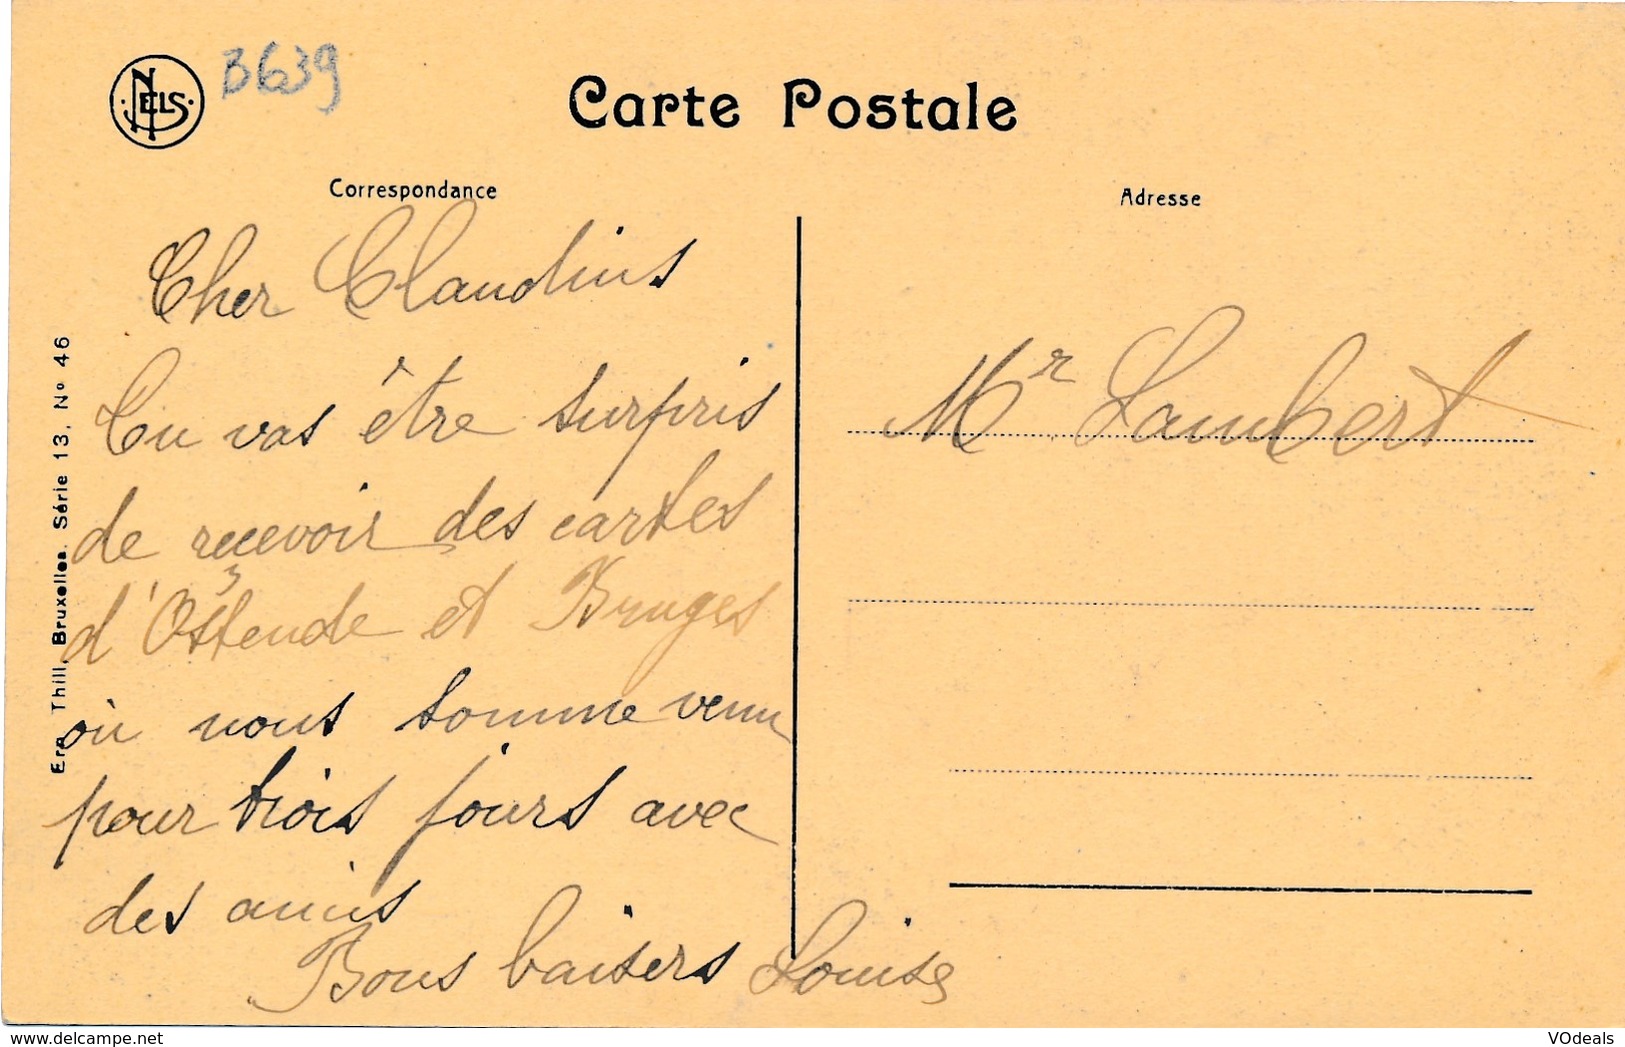 NELS
B639
Carte Postale
Correspondance
Adresse
Cher Claudius
Tu vas être surpris
de reçevoir des cartes
d'Ostende et Bruges
où nous somme venu
pour trois jours avec
des amis
Bons baisers Louise
Mr Lambert
Ern. Thill, Bruxelles. Série 13, No 46
www.delcampe.net
VOdeals